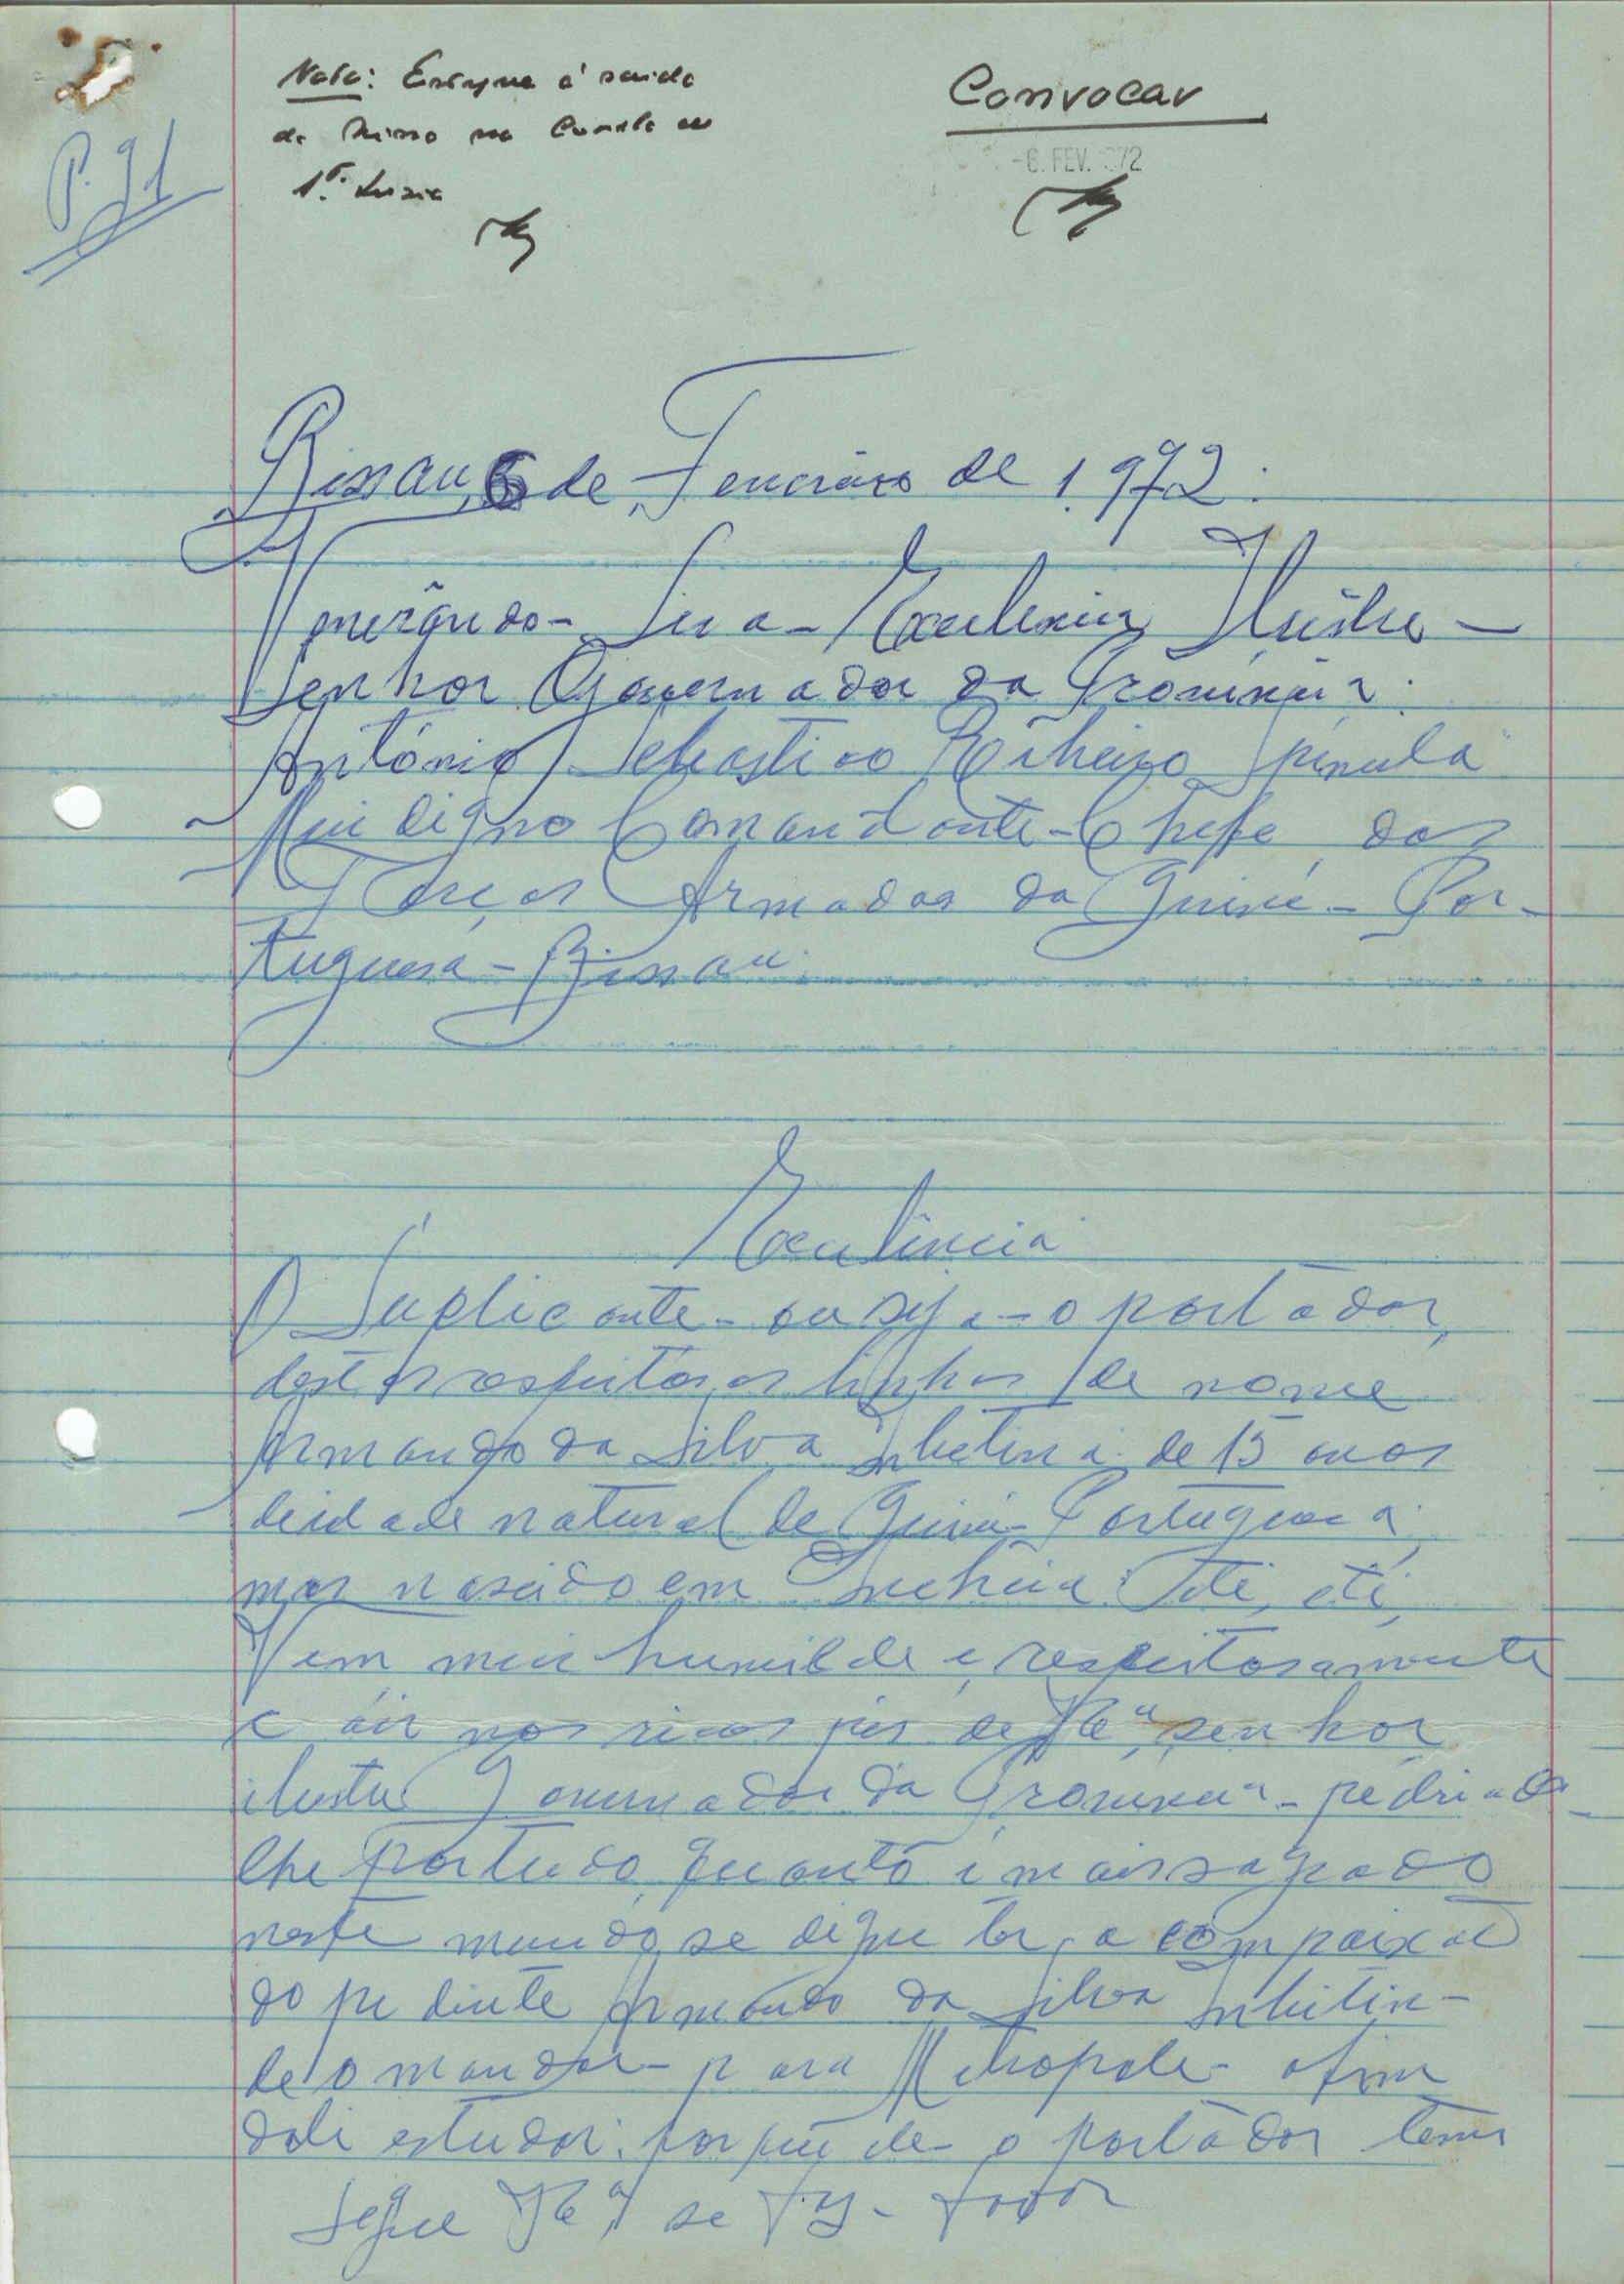 P. 91
Nota: Esteve à saída
da Missa na Capela de
Sta. Luzia
Convocar
-6. FEV. 972
Bissau, 6 de Fevereiro de 1.972.
Venerândo- Sua- Excelencia Ilustre-
Senhor Governador da Província:
António Sebastiao Ribeiro Spínula
Mui digno Comandante-Chefe das
Forças Armadas da Guiné- Por-
tuguesa- Bissau.
Excelência
O Suplicante- ou seja- o portador,
destas respeitosas linhas de nome
Armando da Silva de 15 anos
deidade natural de Guiné- Portuguesa;
mas nascido em
Vem mui humilde e respeitosamente
caír nos ricos pés de V. Exª, senhor
ilustre Governador da Província-
lhe por tudo quanto é mais sagrado
neste mundo, se digne ter a compaixão
do pediente Armando da Silva
de o mandar- para Metropole- afim
dali estudar: porque ele- o portador tem
Segue V. Exª se fz- favor